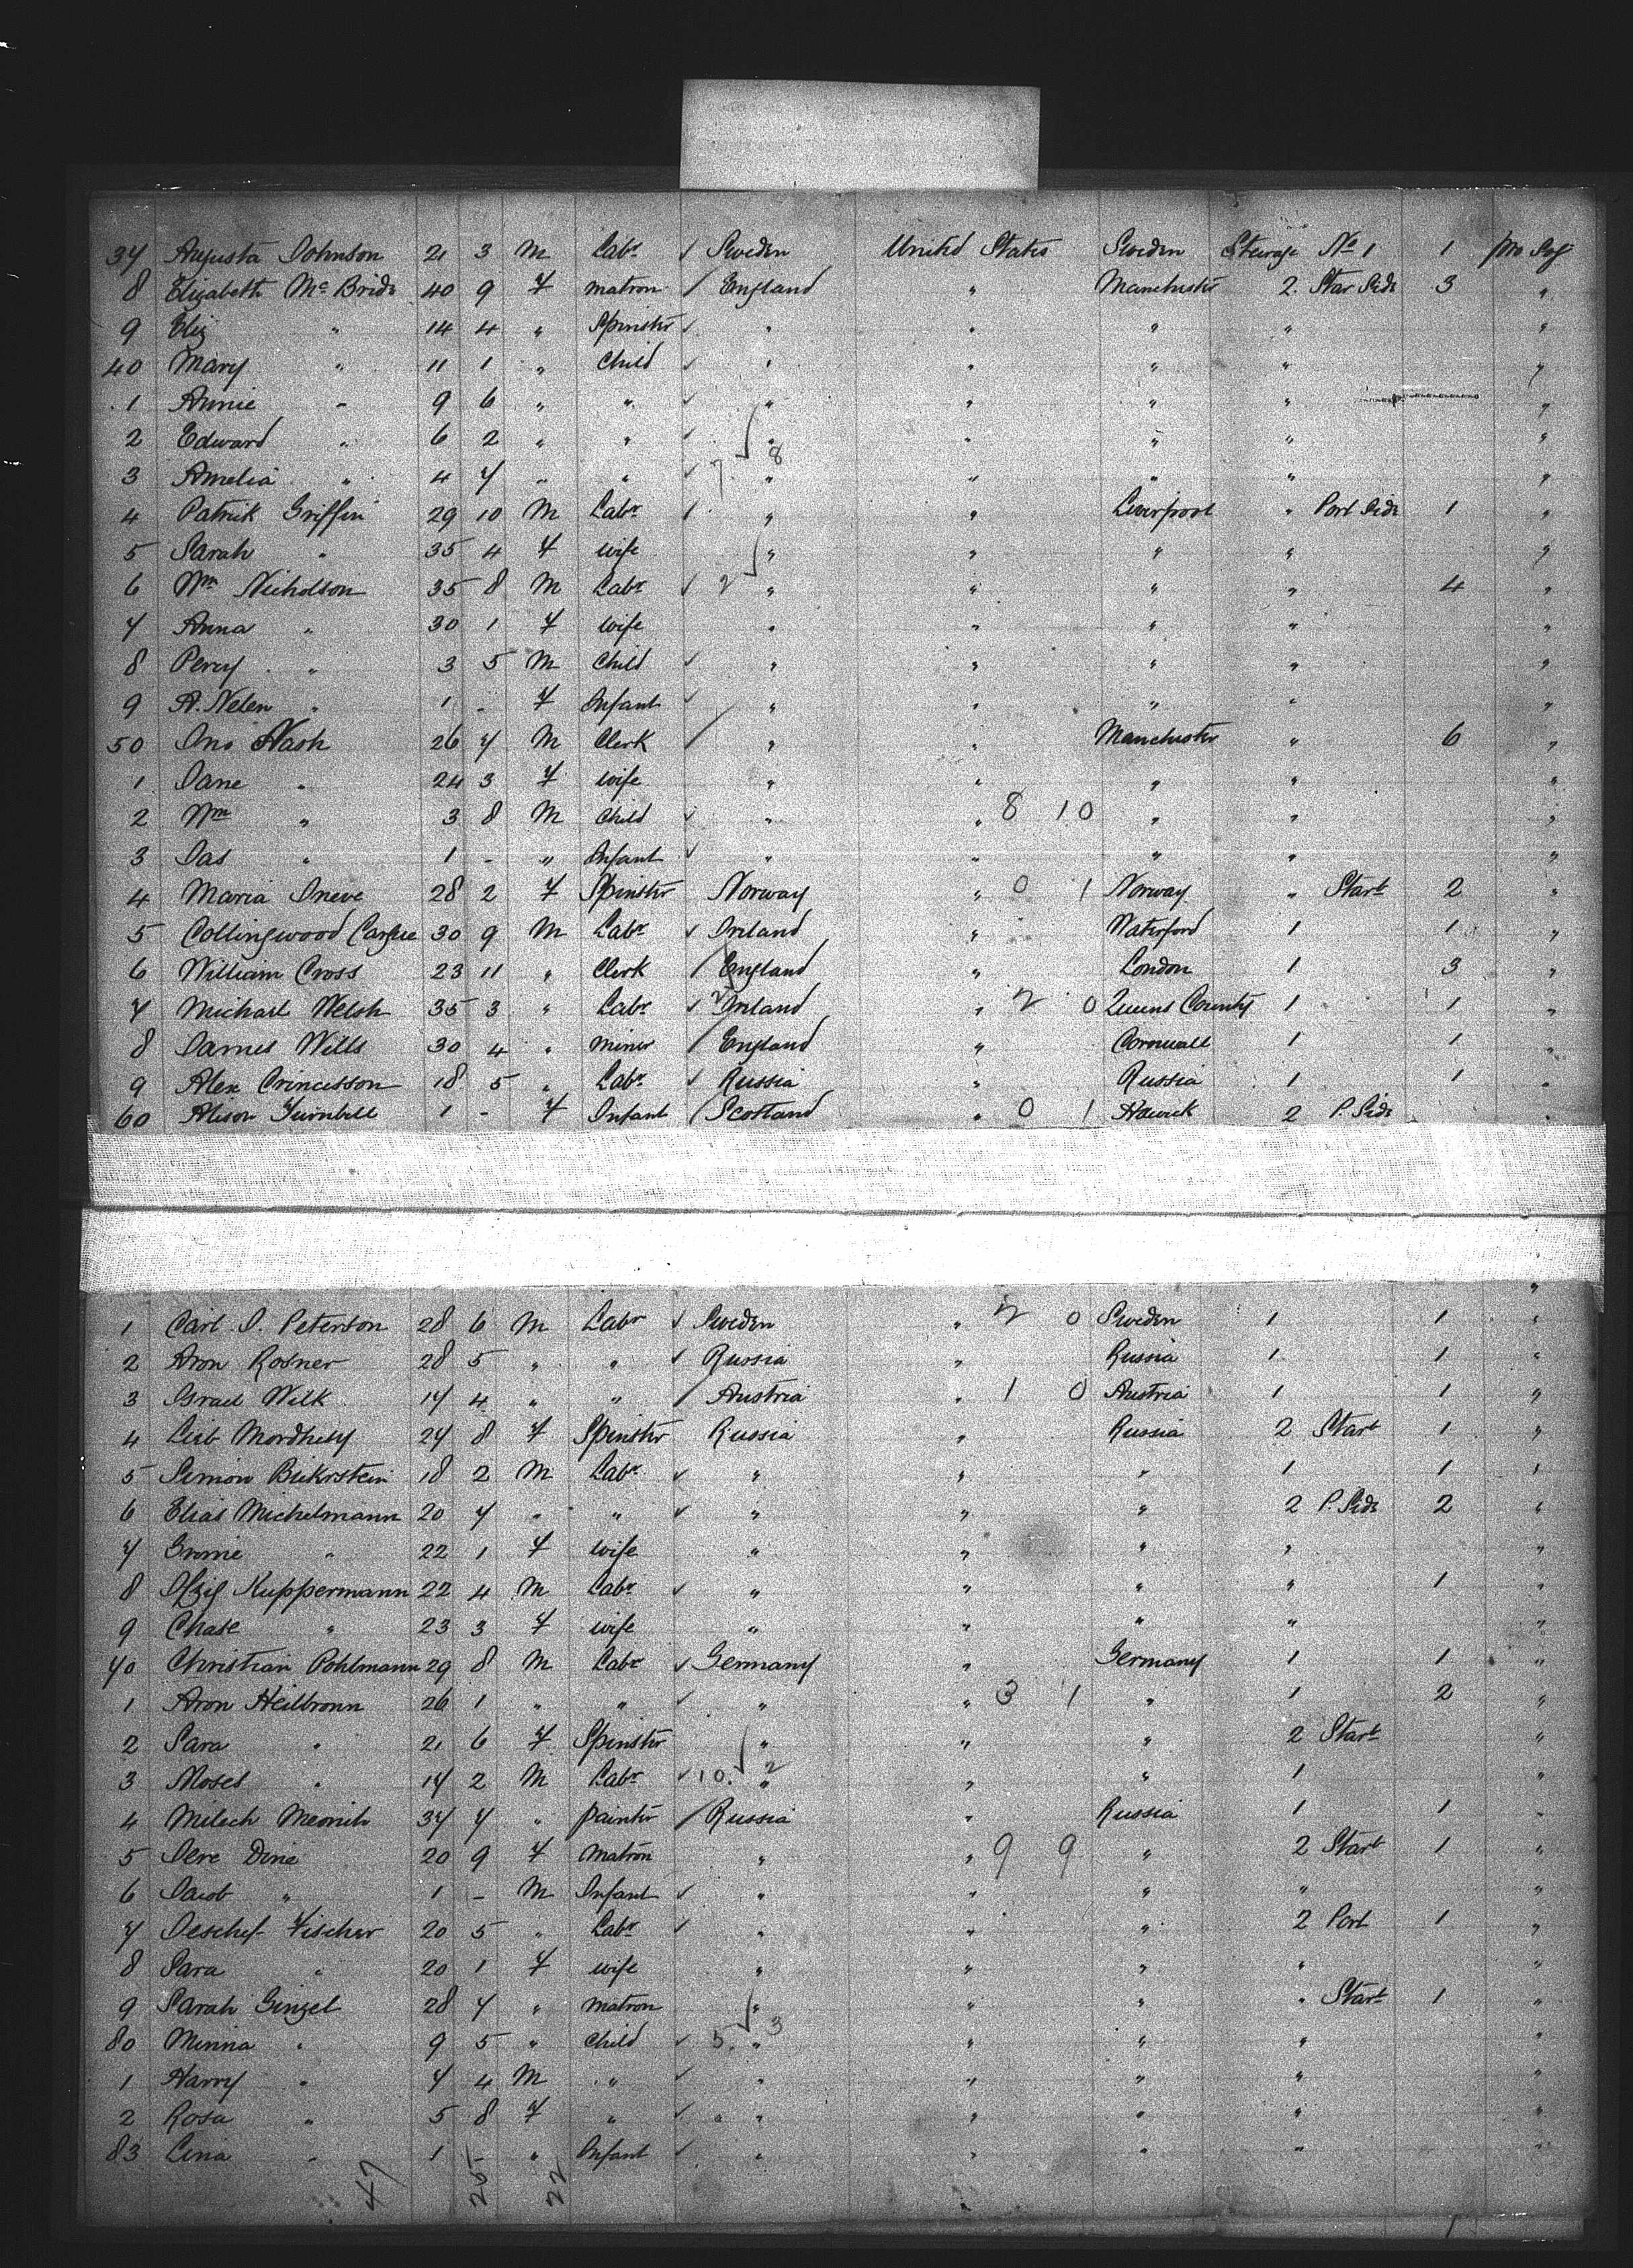 37 Augusta Johnson 21 3 M Labr ✓ Sweden United States Sweden Steerage No 1 1 Pro Soj
8 Elizabeth McBride 40 9 F matron / England " Manchester 2. Star Side 3 "
9 Eliz " 14 4 " Spinster ✓ " " " " "
40 Mary " 11 1 " Child ✓ " " " " "
1 Annie " 9 6 " " ✓ " " " " "
2 Edward " 6 2 " " ✓ " " " " "
3 Amelia " 4 7 " " ✓ 7 " 8 " " " "
4 Patrick Griffin 29 10 M Labr / " " Liverpool " Port Side 1 "
5 Sarah " 35 4 F wife " " " " "
6 Wm Nicholson 35 8 M Labr ✓ 2 " " " " 4 "
7 Anna " 30 1 F wife " " " " "
8 Percy " 3 5 M Child ✓ " " " " "
9 A. Nelen " 1 - F Infant ✓ " " " " "
50 Jno Nash 26 7 M Clerk / " " Manchester " 6 "
1 Jane " 24 3 F wife " " " " "
2 Wm " 3 8 M Child ✓ " " 8 10 " " "
3 Jas " 1 - " Infant ✓ " " " " "
4 Maria Ineve 28 2 F Spinster Norway " 0 1 Norway " Starb 2 "
5 Collingwood Cargue 30 9 M Labr ✓ Ireland " Waterford 1 1 "
6 William Cross 23 11 " Clerk / England " London 1 3 "
7 Michael Welsh 35 3 " Labr ✓ 2 Ireland " 2 0 Queens County 1 1 "
8 James Wills 30 4 " Miner / England " Cornwall 1 1 "
9 Alex Crincesson 18 5 " Labr ✓ Russia " Russia 1 1 "
60 Alison Turnbull 1 - F Infant / Scotland " 0 1 Hawick 2 P. Side "
1 Carl J. Peterson 28 6 M Labr ✓ Sweden " 2 0 Sweden 1 1 "
2 Aron Rosner 28 5 " " ✓ Russia " Russia 1 1 "
3 Israel Wilk 17 4 " " / Austria " 1 0 Austria 1 1 "
4 Lieb 27 8 F Spinster Russia " Russia 2 Starb 1 "
5 Simon 18 2 M Labr ✓ " " " 1 1 "
6 Elias Michelmann 20 7 " " ✓ " " " 2 P. Side 2 "
7 " 22 1 F wife " " " " "
8 Kuppermann 22 4 M Labr ✓ " " " " 1 "
9 Chase " 23 3 F wife " " " " "
70 Christian Pohlmann 29 8 M Labr ✓ Germany " Germany 1 1 "
1 Aron Heilbronn 26 1 " " ✓ " " 3 1 " 1 2 "
2 Sara " 21 6 F Spinster " " " 2 Starb "
3 Moses " 17 2 M Labr ✓ 10. " 2 " " 1 "
4 Milech 37 7 " painter / Russia " Russia 1 1 "
5 Dine 20 9 F Matron " " 9 9 " 2 Starb 1 "
6 Jacob " 1 - M Infant ✓ " " " " "
7 Fischer 20 5 " Labr ✓ " " " 2 Port 1 "
8 Sara " 20 1 F wife " " " " "
9 Sarah Ginzel 28 7 " matron " " " " Starb 1 "
80 Minna " 9 5 " Child ✓ 5. " 3 " " " "
1 Harry " 7 4 M " ✓ " " " " "
2 Rosa " 5 8 F " ✓ " " " " "
83 Lina " 1 - " Infant ✓ " " " " "
47 25 22